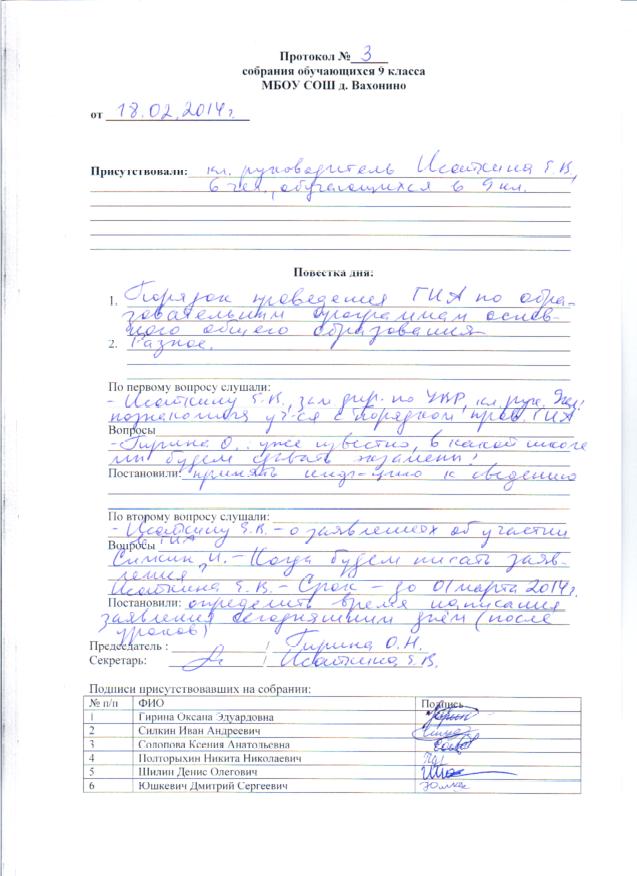 Протокол № 3
собрания обучающихся 9 класса
МБОУ СОШ д. Вахонино
от 18.02.2014г.
Присутствовали: кл. руководитель Исаткина Е.В,
6 чел., обучающихся в 9 кл.
Повестка дня:
1. Порядок проведения ГИА по обра-
зовательным программам основ-
ного общего образования
2. Разное.
По первому вопросу слушали:
- Исаткину Е.В., зам дир. по УВР, кл. рук.
познакомила уч-ся с порядком пров. ГИА
Вопросы
- Гирина О.. уже известно, в какой школе
мы будем сдавать экзамены?
Постановили: принять инф-цию к сведению
По второму вопросу слушали:
- Исаткину Е.В. - о заявлениях об участии
в ГИА
Вопросы
Силкин И. - Когда будем писать заяв-
ления
Исаткина Е.В. - Срок - до 01 марта 2014г.
Постановили: определить время написания
заявления сегодняшним днём (после
уроков)
Председатель : / Гирина О.Н.
Секретарь: / Исаткина Е.В.
Подписи присутствовавших на собрании:
№ п/п ФИО Подпись
1 Гирина Оксана Эдуардовна
2 Силкин Иван Андреевич
3 Солопова Ксения Анатольевна
4 Полторыхин Никита Николаевич
5 Шилин Денис Олегович
6 Юшкевич Дмитрий Сергеевич